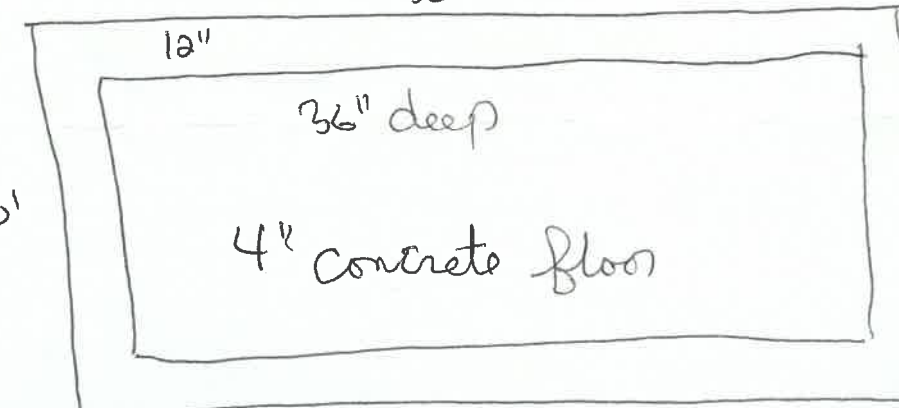 12"
36" deep
4" concrete floor